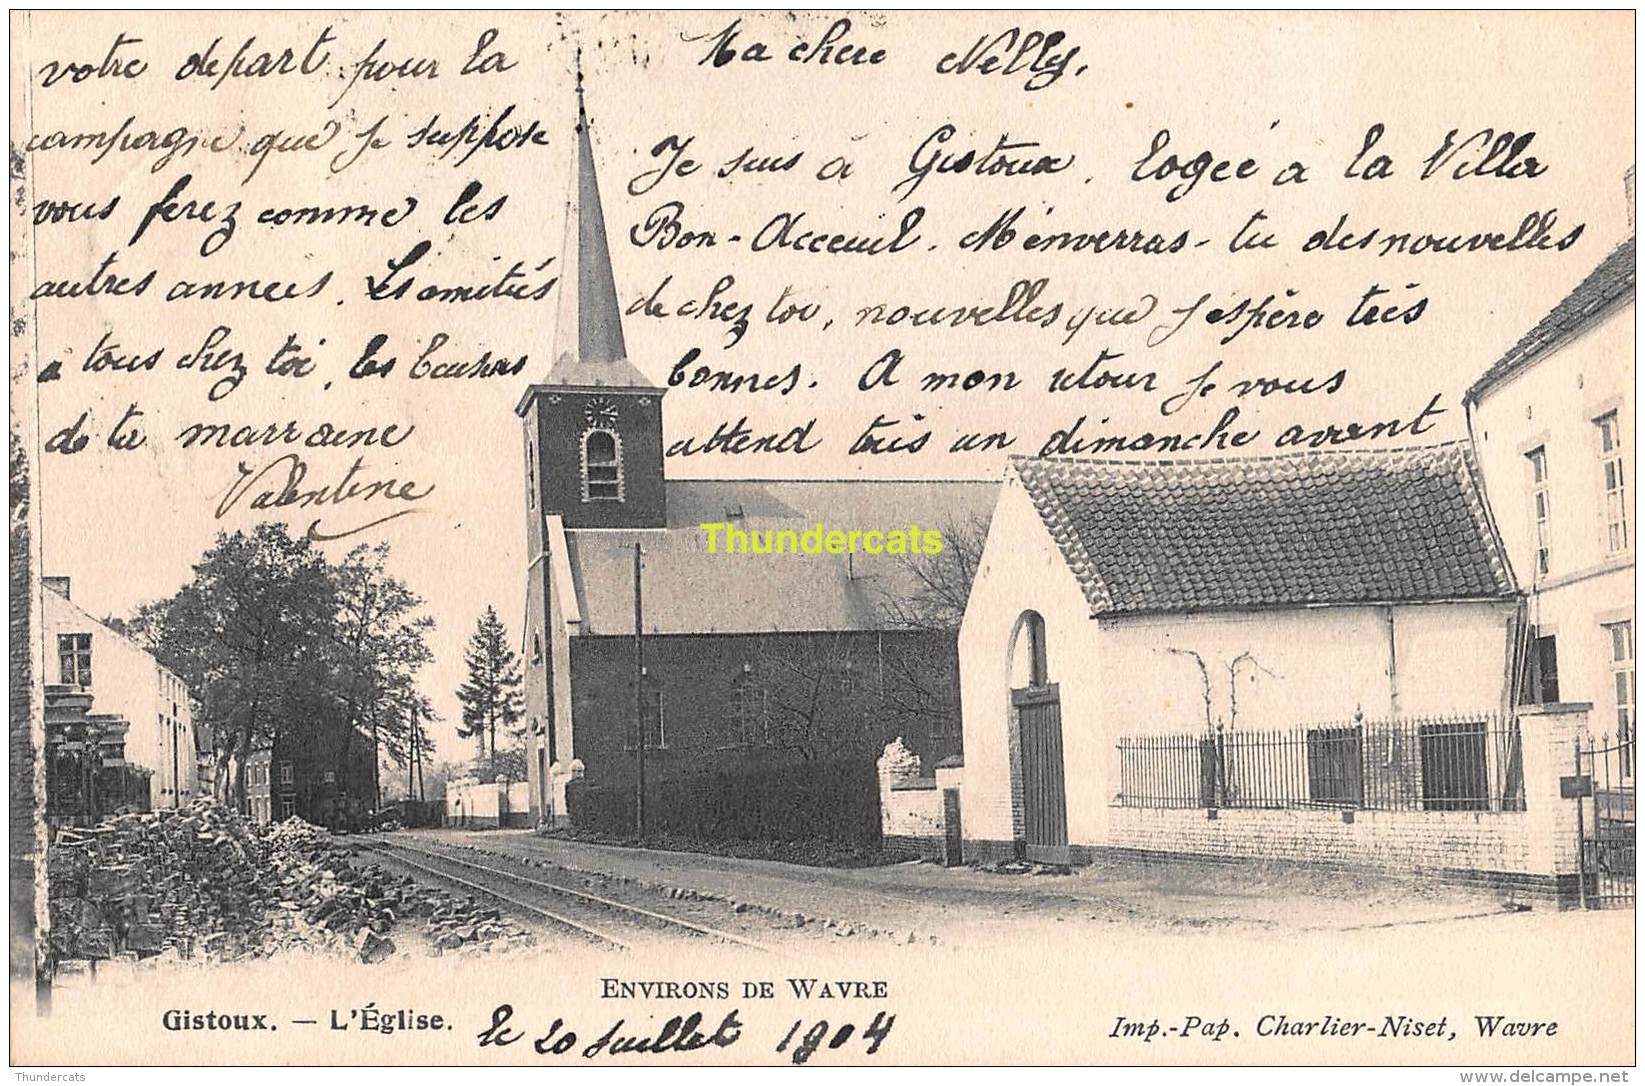 Ma chere Nelly,
Je suis à Gistoux, logée a la Villa
Bon-Acceuil. M'enverras-tu des nouvelles
de chez toi, nouvelles que j'espère très
bonnes. A mon retour je vous
attend tris un dimanche avant
votre depart pour la
campagne que je suppose
vous ferez comme les
autres annees. Les amitiés
a tous chez toi, les baisers
de ta marraine
Valentine
Thundercats
ENVIRONS DE WAVRE
Gistoux. — L'Église.
le 20 Juillet 1904
Imp.-Pap. Charlier-Niset, Wavre
Thundercats
www.delcampe.net